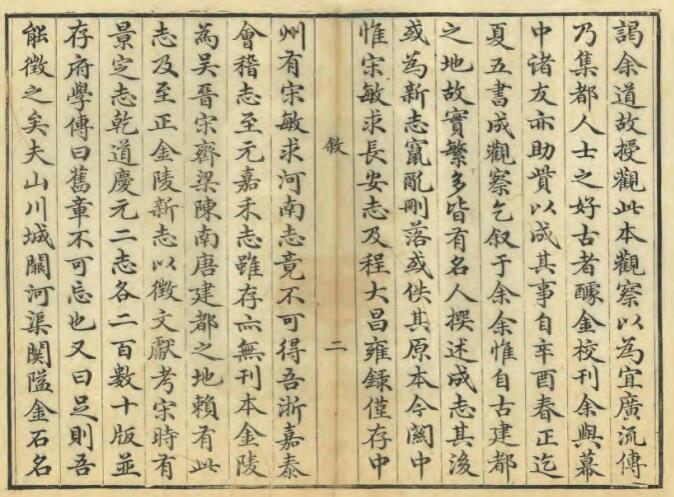 謁余道故授觀此本觀察以為宜廣流傳
乃集都人士之好古者醵金校刊余與幕
中诸友亦助貲以成其事自辛酉春正迄
夏五書成觀察乞叙于余余惟自古建都
之地故實繁多皆有名人撰述成志其後
或為新志竄亂刪落或佚其原本今關中
惟宋敏求長安志及程大昌雍録僅存中
敘
二
州有宋敏求河南志竟不可得吾浙嘉泰
會稽志至元嘉禾志雖存亦無刊本金陵
為吴晉宋齊梁陳南唐建都之地賴有此
志及至正金陵新志以徵文獻考宋時有
景定志乾道慶元二志各二百數十版並
存府學傳曰舊章不可忘也又曰足則吾
能徵之矣夫山川城闕河渠関隘金石名